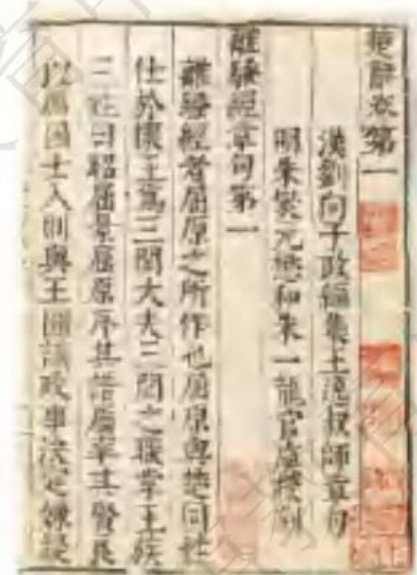 楚辭卷第一
漢劉向子政編集王逸叔師章句
明朱燮元懋和朱一龍官虞校刻
離騷經章句第一
離騷經者屈原之所作也屈原與楚同姓
仕於懷王爲三閭大夫三閭之職掌王族
三姓曰昭屈景屈原序其譜屬率其賢良
以厲國士入則與王圖議政事決定嫌疑